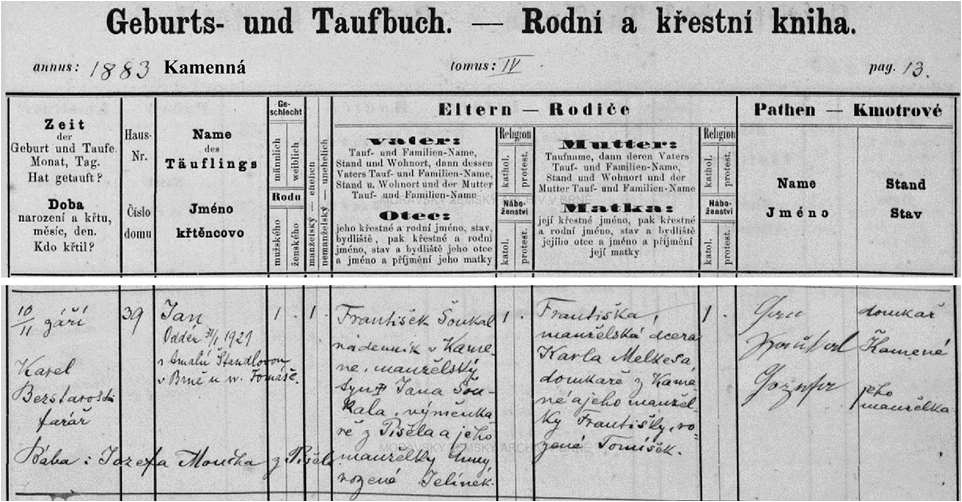 Geburts- und Taufbuch. — Rodní a křestní kniha.
annus: 1883 Kamenná tomus: IV pag. 13.
Zeit
der
Geburt und Taufe.
Monat, Tag.
Hat getauft?
Doba
narození a křtu,
měsíc, den.
Kdo křtil?
Haus-
Nr.
Číslo
domu
Name
des
Täuflings
Jméno
křtěncovo
Ge-
schlecht
männlich
weiblich
Rodu
mužského
ženského
manželský — ehelich
nemanželský — unehelich
Eltern — Rodiče
Vater:
Tauf- und Familien-Name,
Stand und Wohnort, dann dessen
Vaters Tauf- und Familien-Name,
Stand u. Wohnort und der Mutter
Tauf- und Familien-Name
Otec:
jeho křestné a rodní jméno, stav,
bydliště, pak křestné a rodní
jméno, stav a bydliště jeho otce
a jméno a příjmení jeho matky
Religion
kathol.
protest.
Nábo-
ženství
katol.
protest.
Mutter:
Taufname, dann deren Vaters
Tauf- und Familien-Name,
Stand und Wohnort und der
Mutter Tauf- und Familien-Name
Matka:
její křestné jméno, pak křestné
a rodní jméno, stav a bydliště
jejího otce a jméno a příjmení
její matky
Religion
kathol.
protest.
Nábo-
ženství
katol.
protest.
Pathen — Kmotrové
Name
Jméno
Stand
Stav
10/11 září
Karel
Bezstarosti
farář
Bába: Jozefa Moučka z Pišela.
39
Jan
Oddán 3/1 1929
s Amalií Štendlovou
v Brně u sv. Tomáše.
1.
1.
František Šoukal
nádenník v Kame-
né, manželský
syn Jana Šou-
kala, výměnka-
ře z Pišela a jeho
manželky Anny
rozené Jelínek.
1.
Františka,
manželská dcera
Karla Melkesa
domkaře z Kame-
né a jeho manžel-
ky Františky, ro-
zené Tomíšek.
1.
domkař
Kamené
jeho
manželka